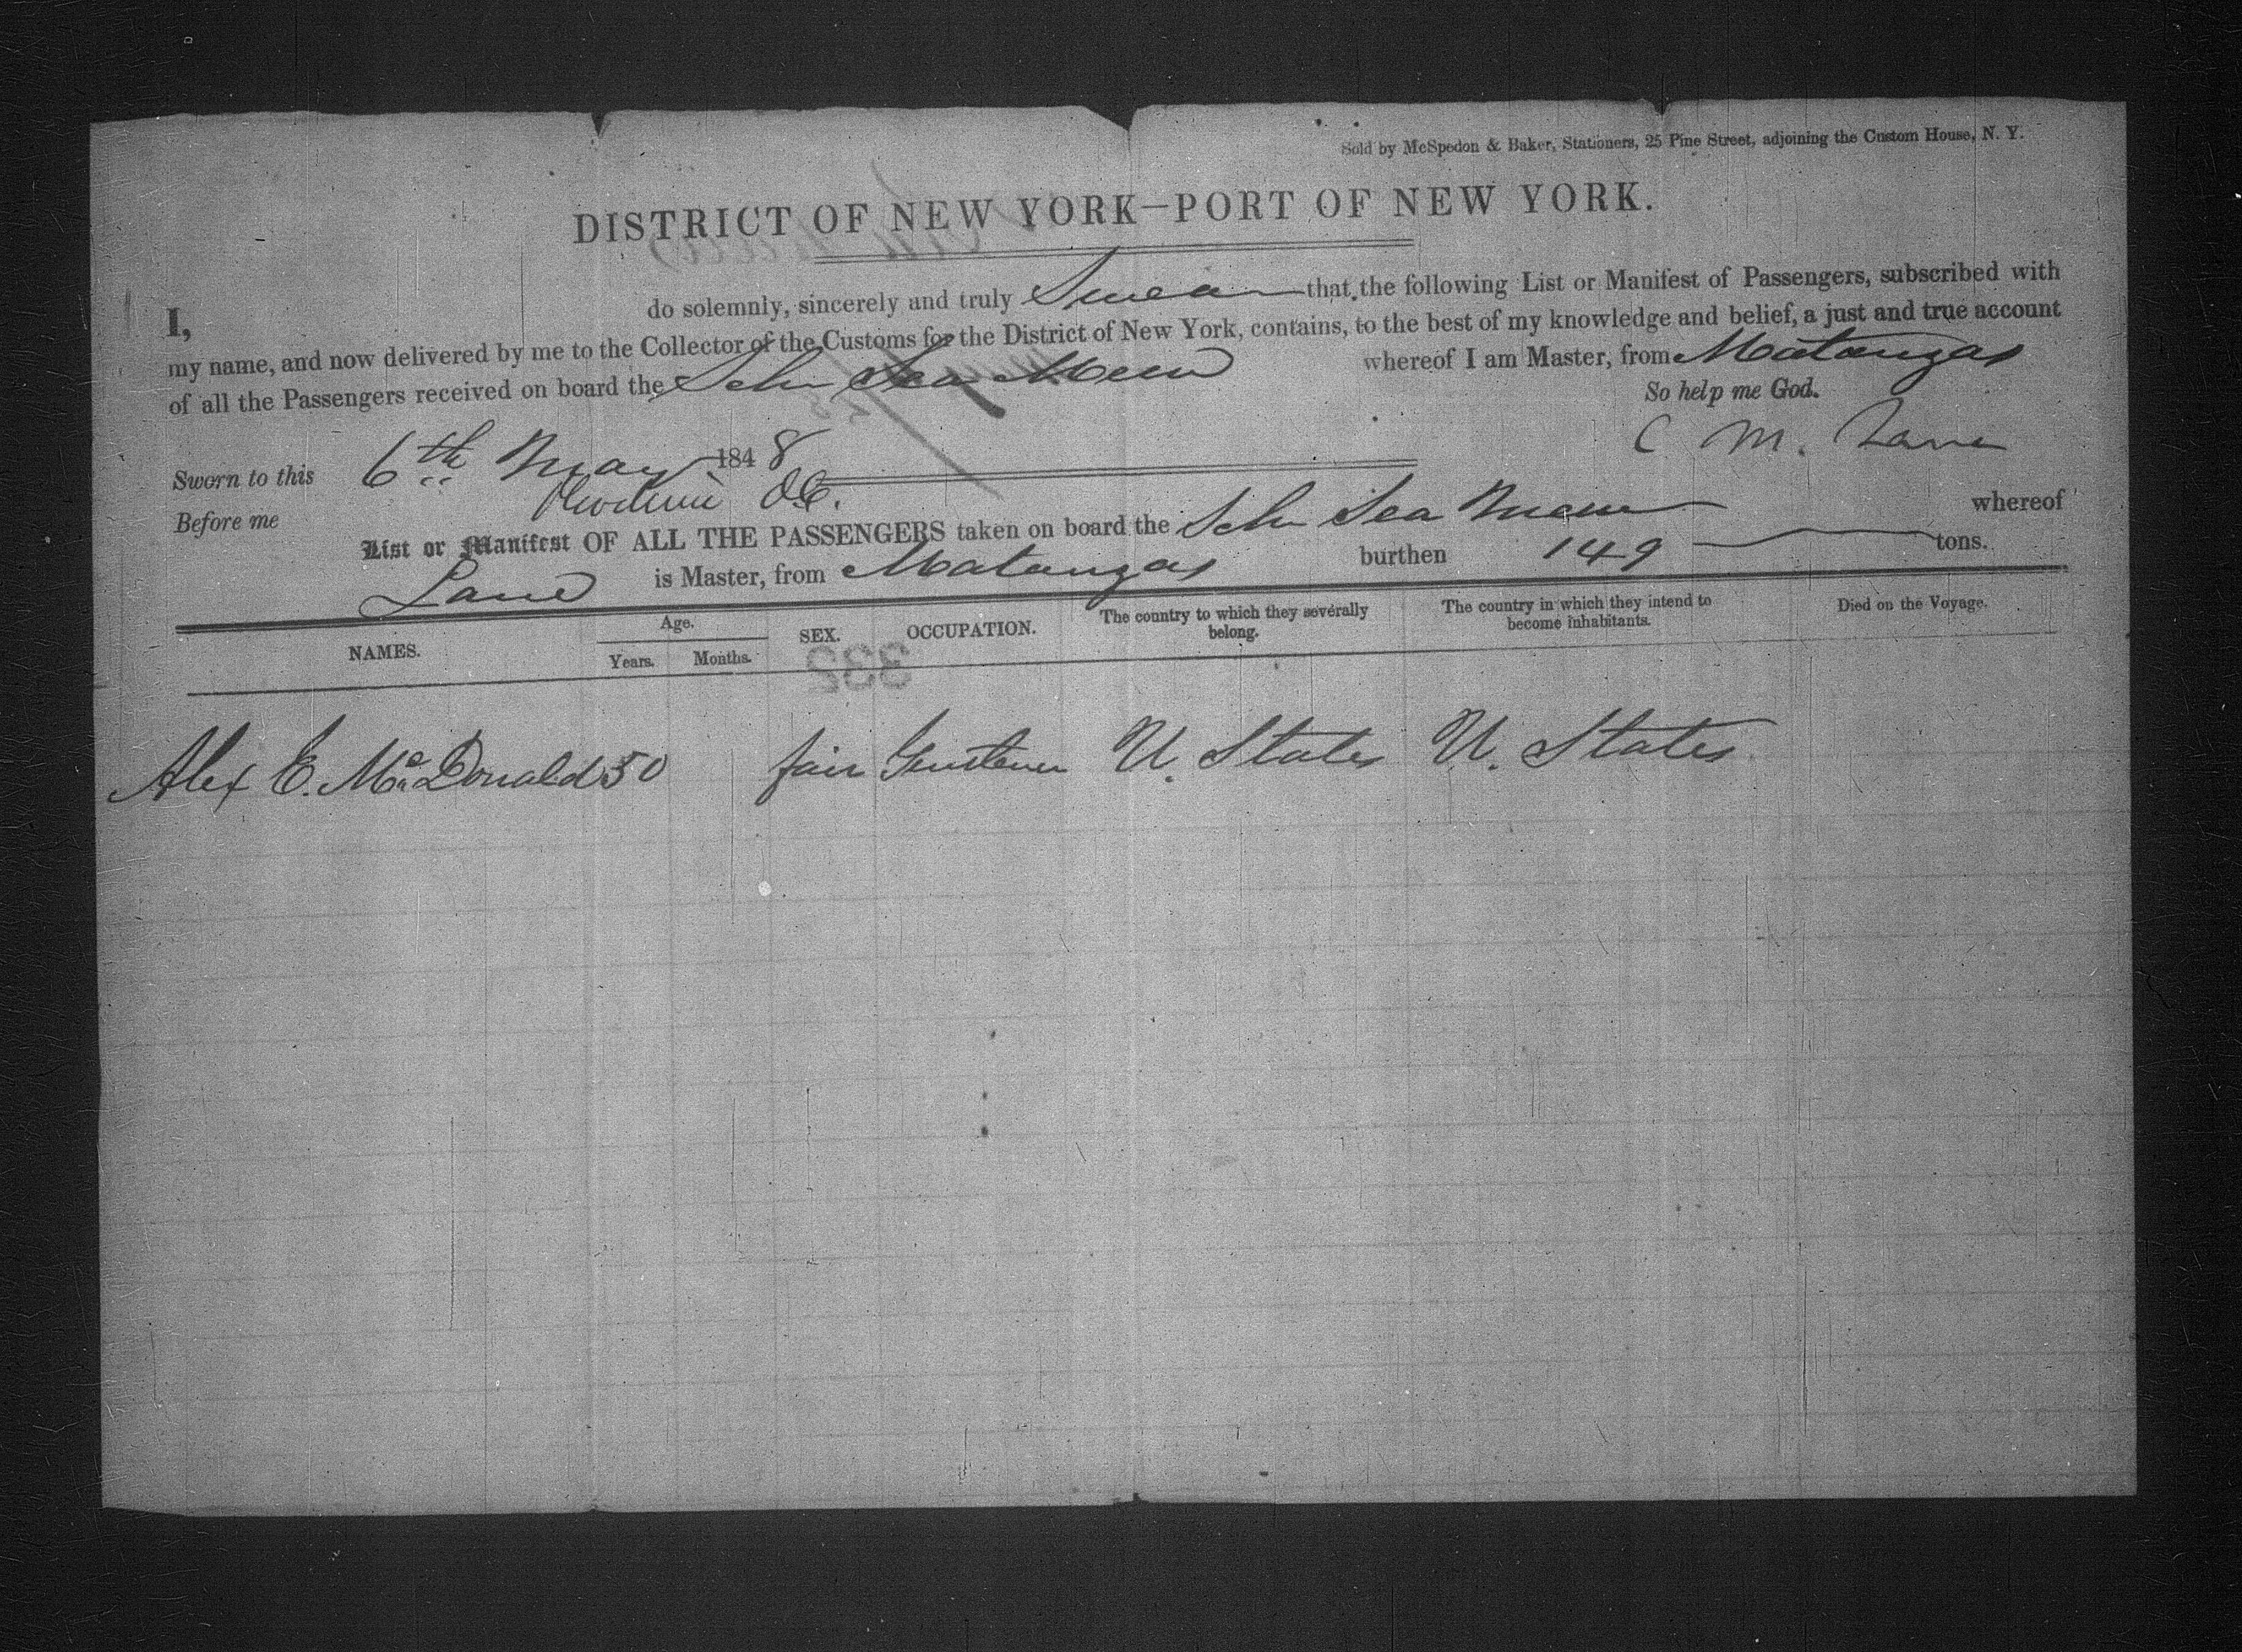 Sold by McSpedon & Baker, Stationers, 25 Pine Street, adjoining the Custom House, N. Y.
DISTRICT OF NEW YORK—PORT OF NEW YORK.
I, do solemnly, sincerely and truly Swear that the following List or Manifest of Passengers, subscribed with
my name, and now delivered by me to the Collector of the Customs for the District of New York, contains, to the best of my knowledge and belief, a just and true account
of all the Passengers received on board the Schr Sea Mew whereof I am Master, from Matanzas
So help me God.
Sworn to this 6th May 1848 C M. Lane
Before me
List or Manifest OF ALL THE PASSENGERS taken on board the Schr Sea Mew whereof
Lane is Master, from Matanzas burthen 149 tons.
NAMES. Age. Years. Months. SEX. OCCUPATION. The country to which they severally belong. The country in which they intend to become inhabitants. Died on the Voyage.
332
Alex E. McDonald 50 U. States U. States